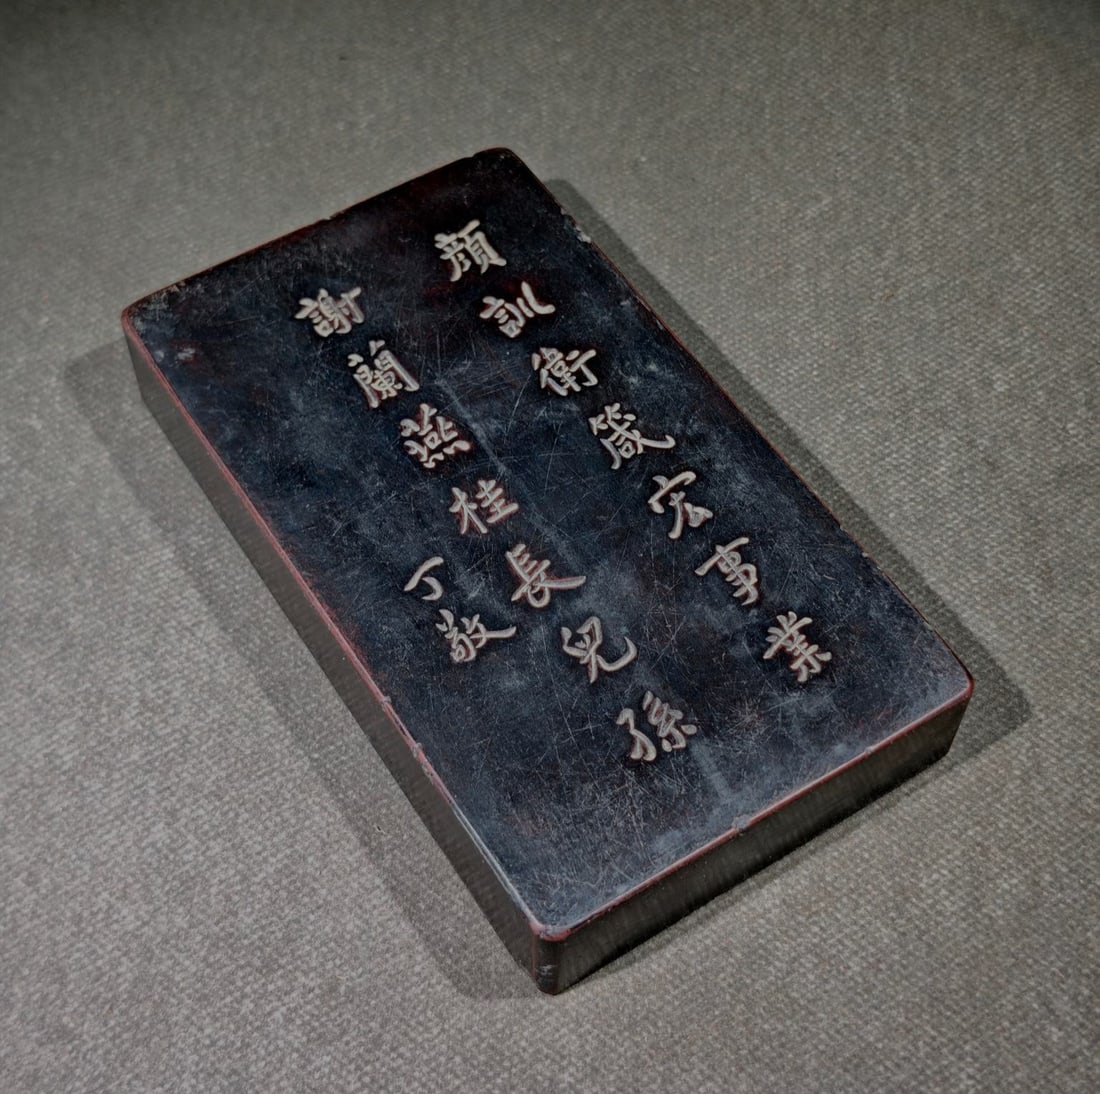 顔訓衛箴宏事業
謝蘭燕桂長兒孫
丁敬